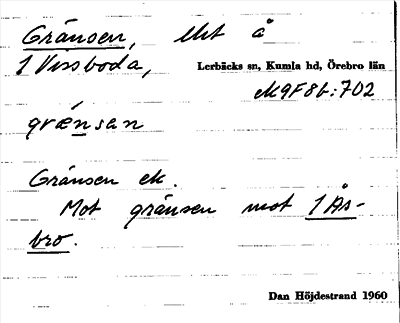 Gränsen, Mt å
1 Vissboda,
Lerbäcks sn, Kumla hd, Örebro län
M9F8b:702
grænsan
Gränsen ek.
Mot gränsen mot 1 Ås-
bro.
Dan Höjdestrand 1960